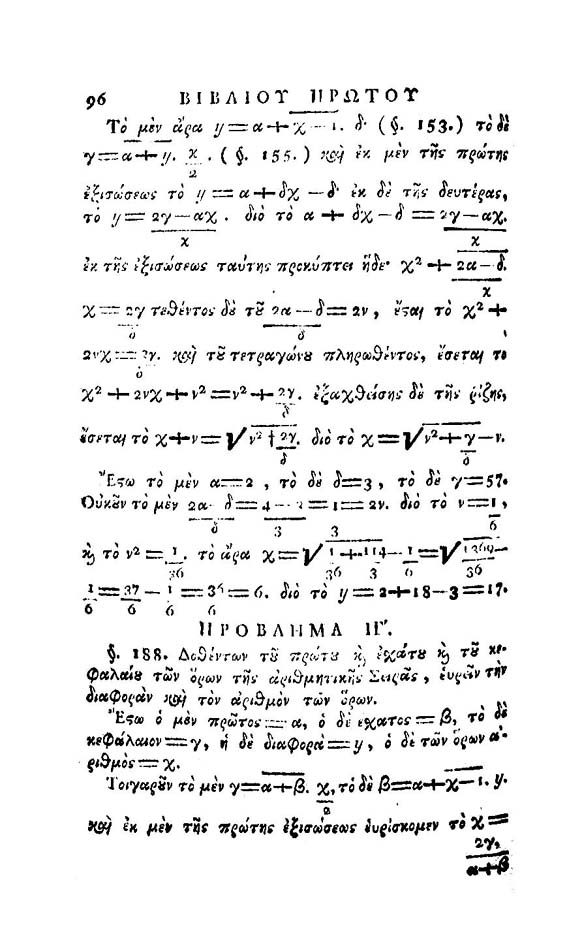 96 ΒΙΒΛΙΟΥ ΠΡΩΤΟΥ
Τὸ μὲν ἄρα y = α + χ − 1. δ· (§. 153.) τὸ δὲ
γ = α + y. χ/2. (§. 155.) καὶ ἐκ μὲν τῆς πρώτης
ἐξισώσεως τὸ y = α + δχ − δ· ἐκ δὲ τῆς δευτέρας,
τὸ y = 2γ − αχ/χ. διὸ τὸ α + δχ − δ = 2γ − αχ/χ.
ἐκ τῆς ἐξισώσεως ταύτης προκύπτει ἥδε· χ² + 2α − δ/χ.
χ = 2γ/δ τεθέντος δὲ τοῦ 2α − δ/δ = 2ν, ἔσαι τὸ χ² +
2νχ = 2γ/δ. καὶ τοῦ τετραγώνου πληρωθέντος, ἔσεται τὸ
χ² + 2νχ + ν² = ν² + 2γ/δ. ἐξαχθείσης δὲ τῆς ῥίζης,
ἔσεται τὸ χ + ν = √ν² + 2γ/δ. διὸ τὸ χ = √ν² + γ/δ − ν.
Ἔστω τὸ μὲν α = 2, τὸ δὲ δ = 3, τὸ δὲ γ = 57.
Οὐκοῦν τὸ μὲν 2α − δ/δ = 4 − 3/3 = 1/3 = 2ν. διὸ τὸ ν = 1/6,
καὶ τὸ ν² = 1/36. τὸ ἄρα χ = √1/36 + 114/3 − 1/6 = √1369/36 −
1/6 = 37/6 − 1/6 = 36/6 = 6. διὸ τὸ y = 2 + 18 − 3 = 17.
ΠΡΟΒΛΗΜΑ ΙΓʹ.
§. 188. Δοθέντων τοῦ πρώτου καὶ ἐχάτου καὶ τοῦ κε-
φαλαίου τῶν ὅρων τῆς ἀριθμητικῆς Σειρᾶς, εὑρεῖν τὴν
διαφορὰν καὶ τὸν ἀριθμὸν τῶν ὅρων.
Ἔστω ὁ μὲν πρῶτος = α, ὁ δὲ ἔχατος = β, τὸ δὲ
κεφάλαιον = γ, ἡ δὲ διαφορὰ = y, ὁ δὲ τῶν ὅρων ἀ-
ριθμὸς = χ.
Τοιγαροῦν τὸ μὲν γ = α + β. χ/2, τὸ δὲ β = α + χ − 1. y.
καὶ ἐκ μὲν τῆς πρώτης ἐξισώσεως εὑρίσκομεν τὸ χ =
2γ,
α + β